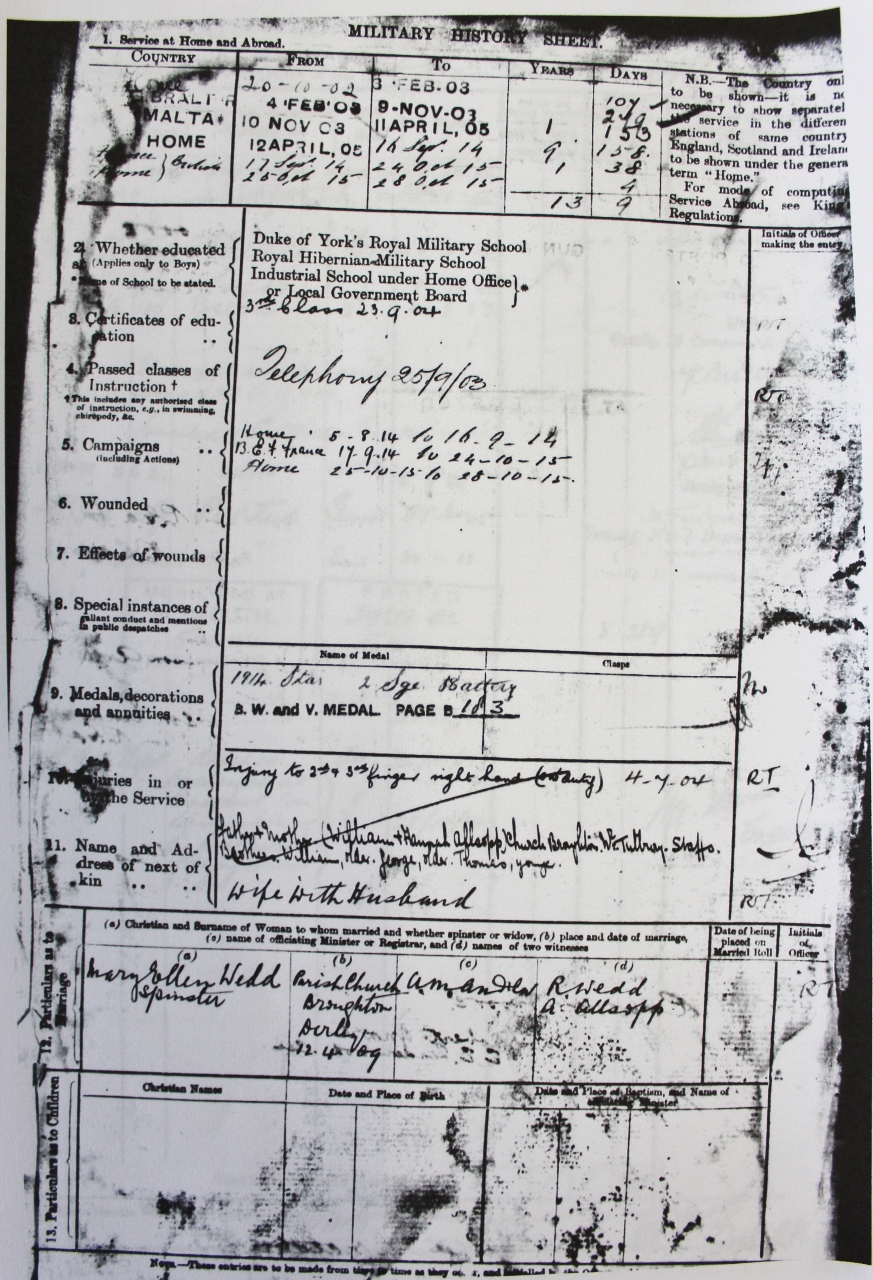 MILITARY HISTORY SHEET.
1. Service at Home and Abroad.
COUNTRY FROM TO YEARS DAYS
20-10-02 3 FEB-03 107
4 FEB'03 9-NOV-03
MALTA 10 NOV 03 11 APRIL, 05 1 153
HOME 12 APRIL, 05 16 Sept. 14 9 158
17 Sept. 14 24 Oct 15 1 38
Home 25 Oct 15 28 Oct 15 4
13 9
N.B.—The Country
to be shown—it is
necessary to show
the service in the
stations of same country
England, Scotland and
to be shown under the
term "Home."
For mode of
Service Abroad, see
Regulations.
Initials of Officer
making the entry
2. Whether educated
(Applies only to Boys)
of School to be stated.
Duke of York's Royal Military School
Royal Hibernian Military School
Industrial School under Home Office
or Local Government Board }*
3. Certificates of edu-
cation ..
3rd Class 23.9.04
4. Passed classes of
Instruction †
† This includes any authorised class
of instruction, e.g., in swimming,
chiropody, &c.
Telephony 25/9/03
RT
5. Campaigns ..
(including Actions)
Home 5-8-14 to 16-9-14
B.E.F. France 17-9-14 to 24-10-15
Home 25-10-15 to 28-10-15.
6. Wounded ..
7. Effects of wounds
8. Special instances of
gallant conduct and mentions
in public despatches ..
Name of Medal Clasps
9. Medals, decorations
and annuities ..
1914 Star 2 Sge. Battery
B. W. and V. MEDAL PAGE B 103
10. Injuries in or
by the Service
Injury to 2nd & 3rd finger right hand (on duty) 4-7-04
RT
11. Name and Ad-
dress of next of
kin .. ..
father & mother (William & Hannah Allsopp) Church Broughton Nr. Tutbury. Staffs.
Brothers William, older. George, older. Thomas, younger.
Wife with Husband
RT
12. Particulars as to
Marriage
(a) Christian and Surname of Woman to whom married and whether spinster or widow, (b) place and date of marriage,
(c) name of officiating Minister or Registrar, and (d) names of two witnesses
Date of being
placed on
Married Roll
Initials
of
Officer
(a) (b) (c) (d)
Mary Ellen Wedd
Spinster
Parish Church
Broughton
Derby
12.4.09
R. Wedd
A. Allsopp
RT
13. Particulars as to Children
Christian Names Date and Place of Birth Date and Place of Baptism, and Name of
Minister
NOTE.—These entries are to be made from time to time as they